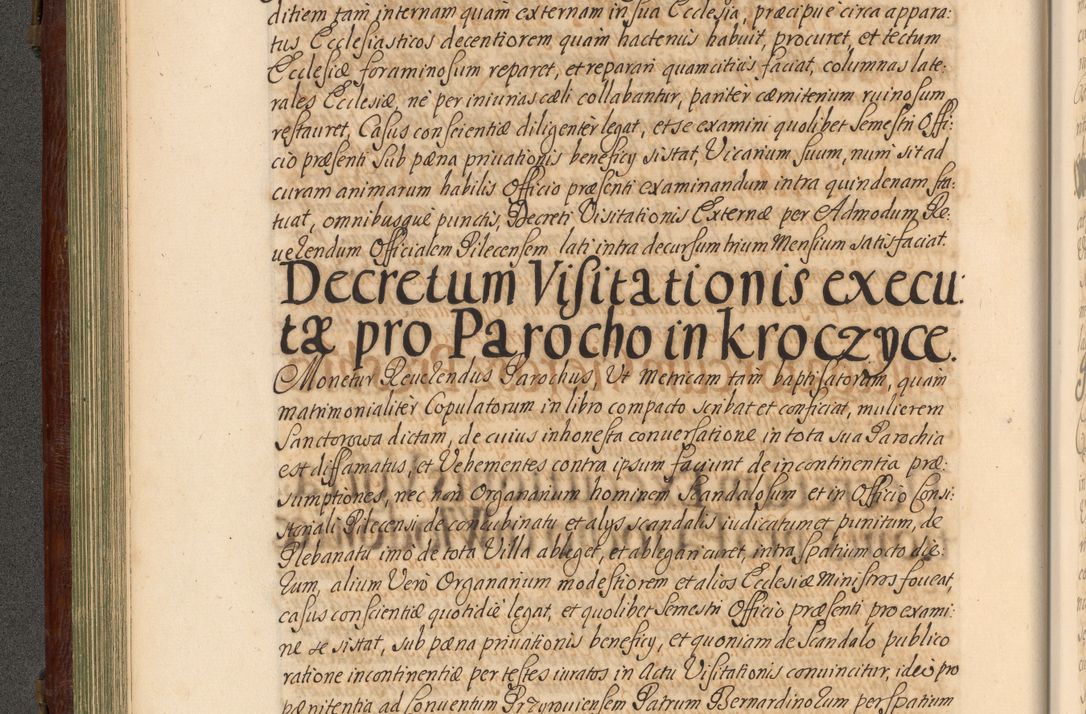 ditiem tam internam quam externam in sua Ecclesia, præcipuè circa appara:
tus Ecclesiasticos decentiorem quam hactenus habuit, procuret, et tectum
Ecclesiæ foraminosum reparet, et reparari quamcitius faciat, columnas late:
rales Ecclesiæ, nè per iniurias cæli collabantur, paritèr cæmiterium ruinosum
restauret, Casus conscientiæ diligentèr legat, et se examini quolibet semestri Offi:
cio præsenti sub pæna priuationis beneficÿ sistat, Vicarium suum, num sit ad
curam animarum habilis Officio præsenti examinandum intra quindenam sta:
tuat, omnibusquè punctis, Decreti Visitationis Externæ per Admodum Re:
uerendum Officialem Pilecensem lati intra decursum trium Mensium satisfaciat.
Decretum Visitationis execu:
tæ pro Parocho in kroczyce.
Monetur Reuerendus Parochus, Vt Metricam tam baptisatorum, quàm
matrimonialitèr Copulatorum in libro compacto scribat et conficiat, mulierem
Sanctorowa dictam, de cuius inhonesta conuersatione in tota sua Parochia
est diffamatus, et Vehementes contra ipsum faciunt de incontinentia præ:
sumptiones, nec non Organarium hominem scandalosum et in Officio Consi:
storiali Pilecensi de concubinatu et alÿs scandalis iudicatum et punitum, de
Plebanatu imò de tota Villa ableget, et ablegari curet, intra spatium octo die:
rum, alium Verò Organarium modestiorem et alios Ecclesiæ Ministros foueat,
casus conscientiæ quotidiè legat, et quolibet semestri Officio præsenti pro exami:
ne se sistat, sub pæna priuationis beneficÿ, et quoniam de scandalo publico
ratione incontinentiæ per testes iuratos in Actu Visitationis conuincitur, ideò pro
pænitentia ad Conuentum Przyrouiensem Patrum Bernardinorum per spatium